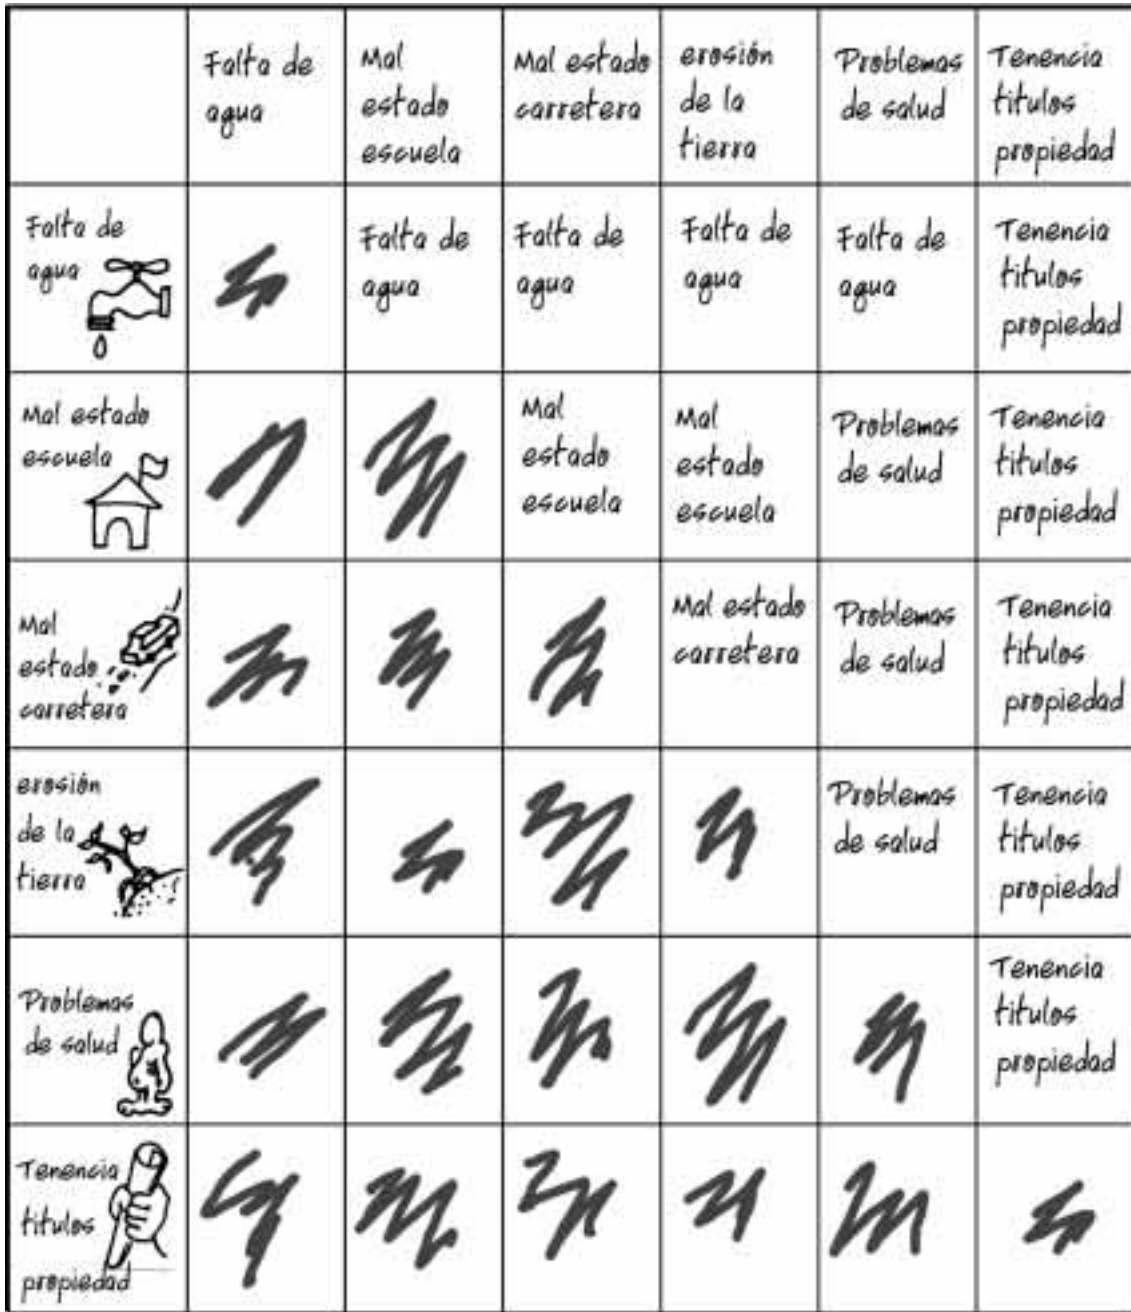 Falta de
agua
Mal
estado
escuela
Mal estado
carretera
erosión
de la
tierra
Problemas
de salud
Tenencia
titulos
propiedad
Falta de
agua
Falta de
agua
Falta de
agua
Falta de
agua
Falta de
agua
Tenencia
titulos
propiedad
Mal estado
escuela
Mal
estado
escuela
Mal
estado
escuela
Problemas
de salud
Tenencia
titulos
propiedad
Mal
estado
carretera
Mal estado
carretera
Problemas
de salud
Tenencia
titulos
propiedad
erosión
de la
tierra
Problemas
de salud
Tenencia
titulos
propiedad
Problemas
de salud
Tenencia
titulos
propiedad
Tenencia
titulos
propiedad